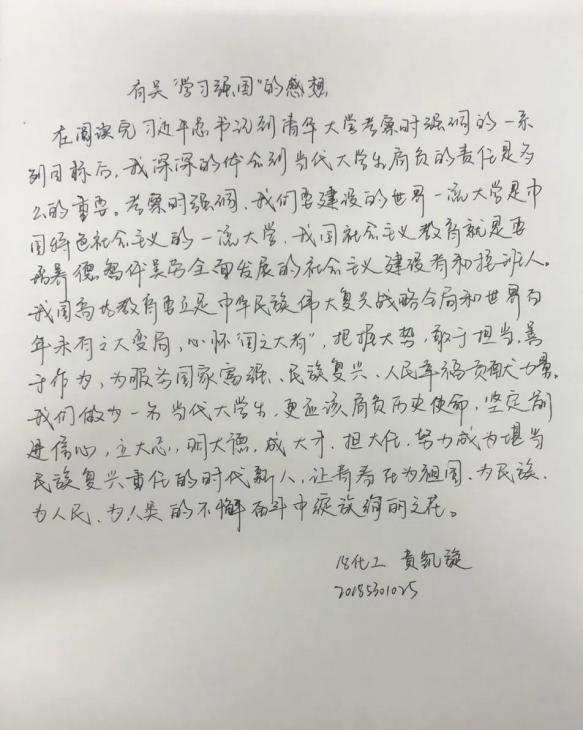 有关“学习强国”的感想
在阅读完习近平总书记到清华大学考察时强调的一系
列目标后，我深深的体会到当代大学生肩负的责任是多
么的重要。考察时强调，我们要建设的世界一流大学是中
国特色社会主义的一流大学，我国社会主义教育就是要
培养德智体美劳全面发展的社会主义建设者和接班人。
我国高等教育要立足中华民族伟大复兴战略全局和世界百
年未有之大变局，心怀“国之大者”，把握大势，敢于担当，善
于作为，为服务国家富强、民族复兴、人民幸福贡献力量。
我们做为一名当代大学生，更应该肩负历史使命，坚定前
进信心，立大志，明大德，成大才，担大任，努力成为堪当
民族复兴重任的时代新人，让青春在为祖国、为民族、
为人民、为人类的不懈奋斗中绽放绚丽之花。
18化工 黄凯旋
20185301025